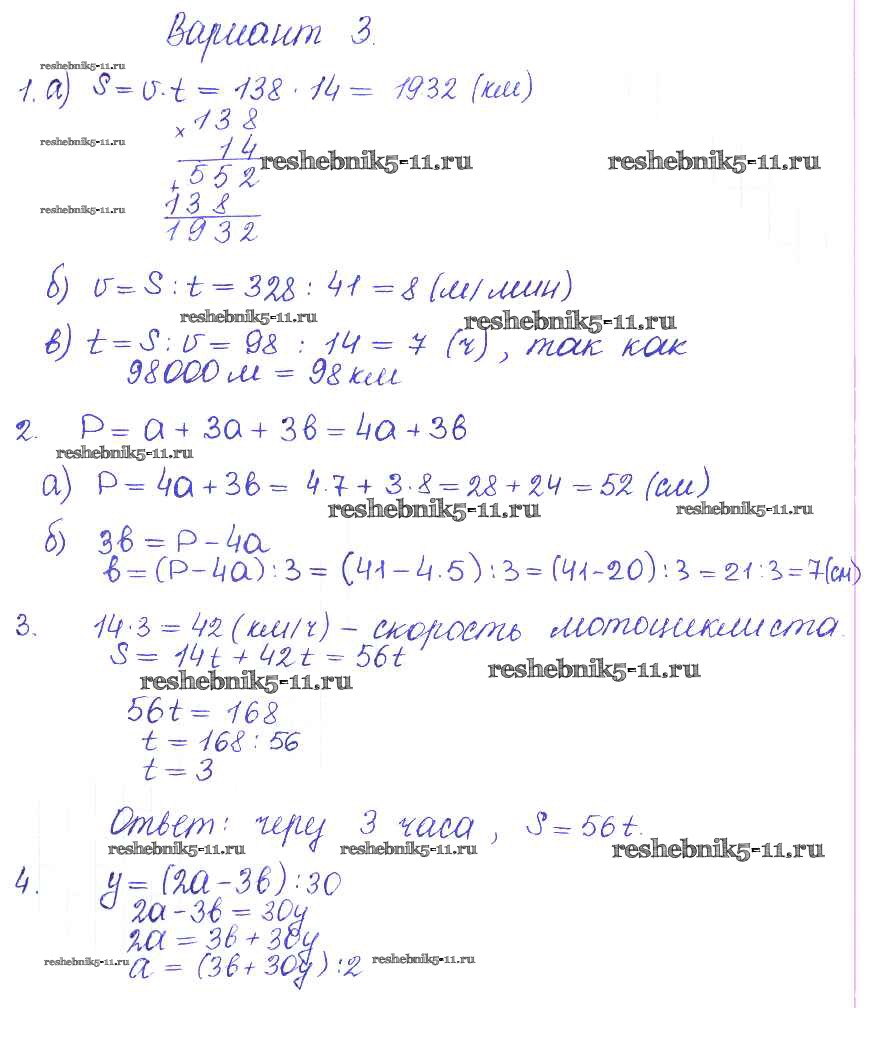 Вариант 3.
reshebnik5-11.ru
1. а) S = v·t = 138 · 14 = 1932 (км)
× 138
reshebnik5-11.ru
14
reshebnik5-11.ru reshebnik5-11.ru
+ 552
reshebnik5-11.ru
138
1932
б) v = S : t = 328 : 41 = 8 (м/мин)
reshebnik5-11.ru reshebnik5-11.ru
в) t = S : v = 98 : 14 = 7 (ч), так как
98000 м = 98 км
2. P = a + 3a + 3в = 4a + 3в
reshebnik5-11.ru
а) P = 4a + 3в = 4·7 + 3·8 = 28 + 24 = 52 (см)
reshebnik5-11.ru reshebnik5-11.ru
б) 3в = P – 4a
в = (P – 4a) : 3 = (41 – 4·5) : 3 = (41-20) : 3 = 21 : 3 = 7(см)
3. 14·3 = 42 (км/ч) – скорость мотоциклиста.
S = 14t + 42t = 56t
reshebnik5-11.ru reshebnik5-11.ru
56t = 168
t = 168 : 56
t = 3
Ответ: через 3 часа, S = 56t.
reshebnik5-11.ru reshebnik5-11.ru reshebnik5-11.ru
4. y = (2a – 3в) : 30
2a – 3в = 30y
2a = 3в + 30y
reshebnik5-11.ru a = (3в + 30y) : 2 reshebnik5-11.ru